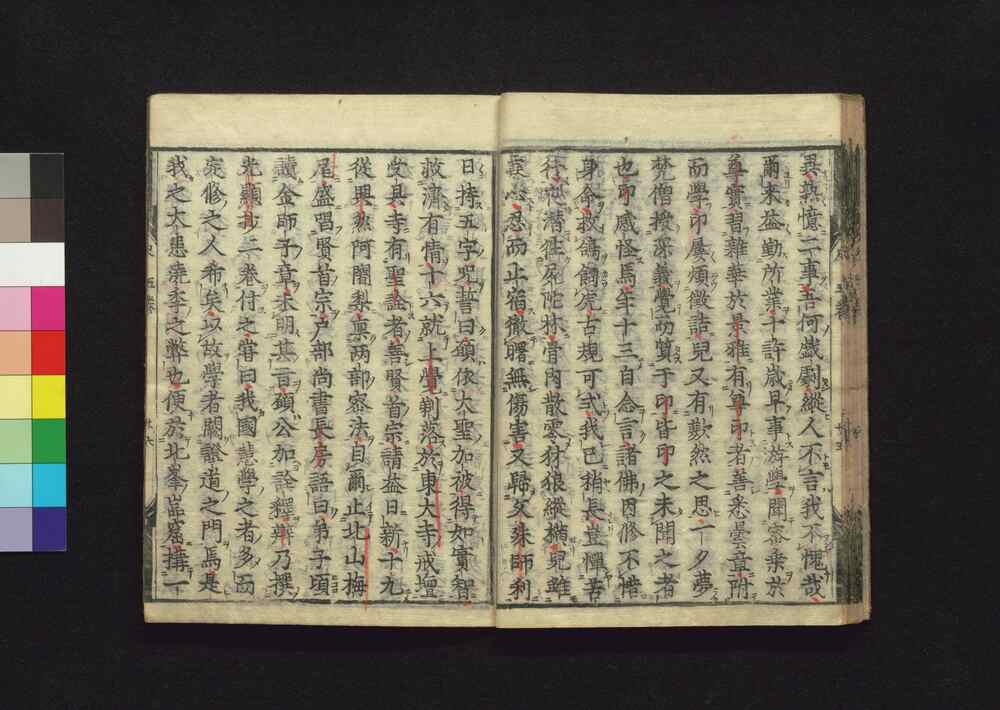 異熟憶二事吾何戯劇縱人不言我不愧哉
爾来益勤所業十許歳早事遊學聞密乗於
尊實習雜華於景雅有尊印者善悉曇章附
而學印屡煩徴詰兒又有歎然之思一夕夢
梵僧授深義覺而質于印皆印之未聞之者
也印感怪焉年十三自念言諸佛因修不惜
身命救鴿飼虎古規可式我已稍長豈憚苦
行心潜往尸陀林骨肉散零豺狼縱横兒雖
畏心忍而止宿徹曙無傷害又歸文殊師利
日持五字呪誓曰願依大聖加被得如實智
救濟有情十六就上覺剃落於東大寺戒壇
受具寺有聖詮者善賢首宗請益日新十九
從興然阿闍梨稟兩部密法自爾止北山梅
尾盛唱賢首宗户部尚書長房語曰弟子頃
讀金師子章未明其旨願公加詮釋辨乃撰
光顯抄二卷付之甞曰我國慧學之者多而
定修之人希矣以故學者闕證道之門焉是
我之大患澆季之弊也便於北峯嵓窟搆一